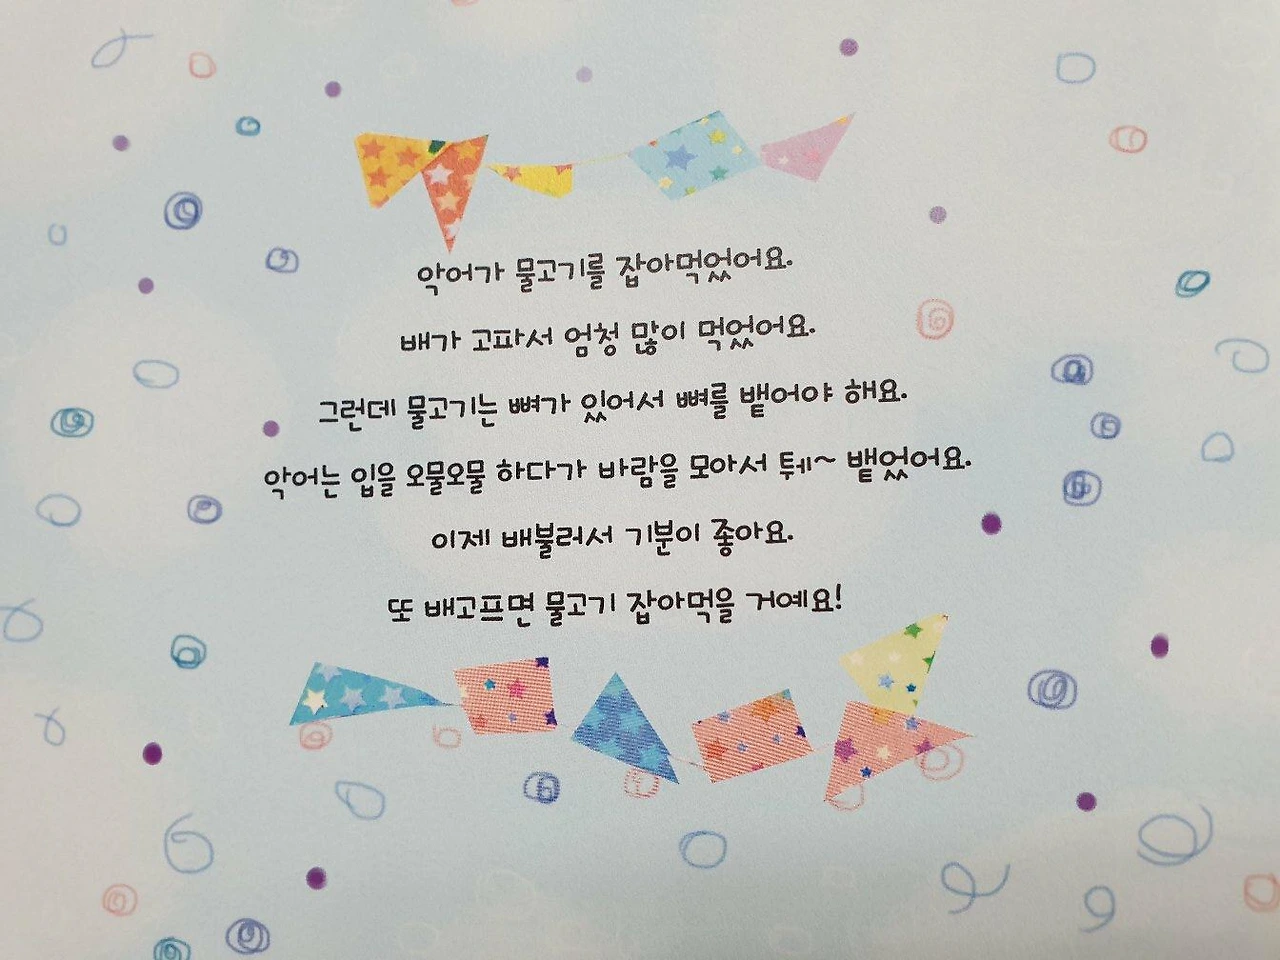 악어가 물고기를 잡아먹었어요.
배가 고파서 엄청 많이 먹었어요.
그런데 물고기는 뼈가 있어서 뼈를 뱉어야 해요.
악어는 입을 오물오물 하다가 바람을 모아서 퉤~ 뱉었어요.
이제 배불러서 기분이 좋아요.
또 배고프면 물고기 잡아먹을 거예요!